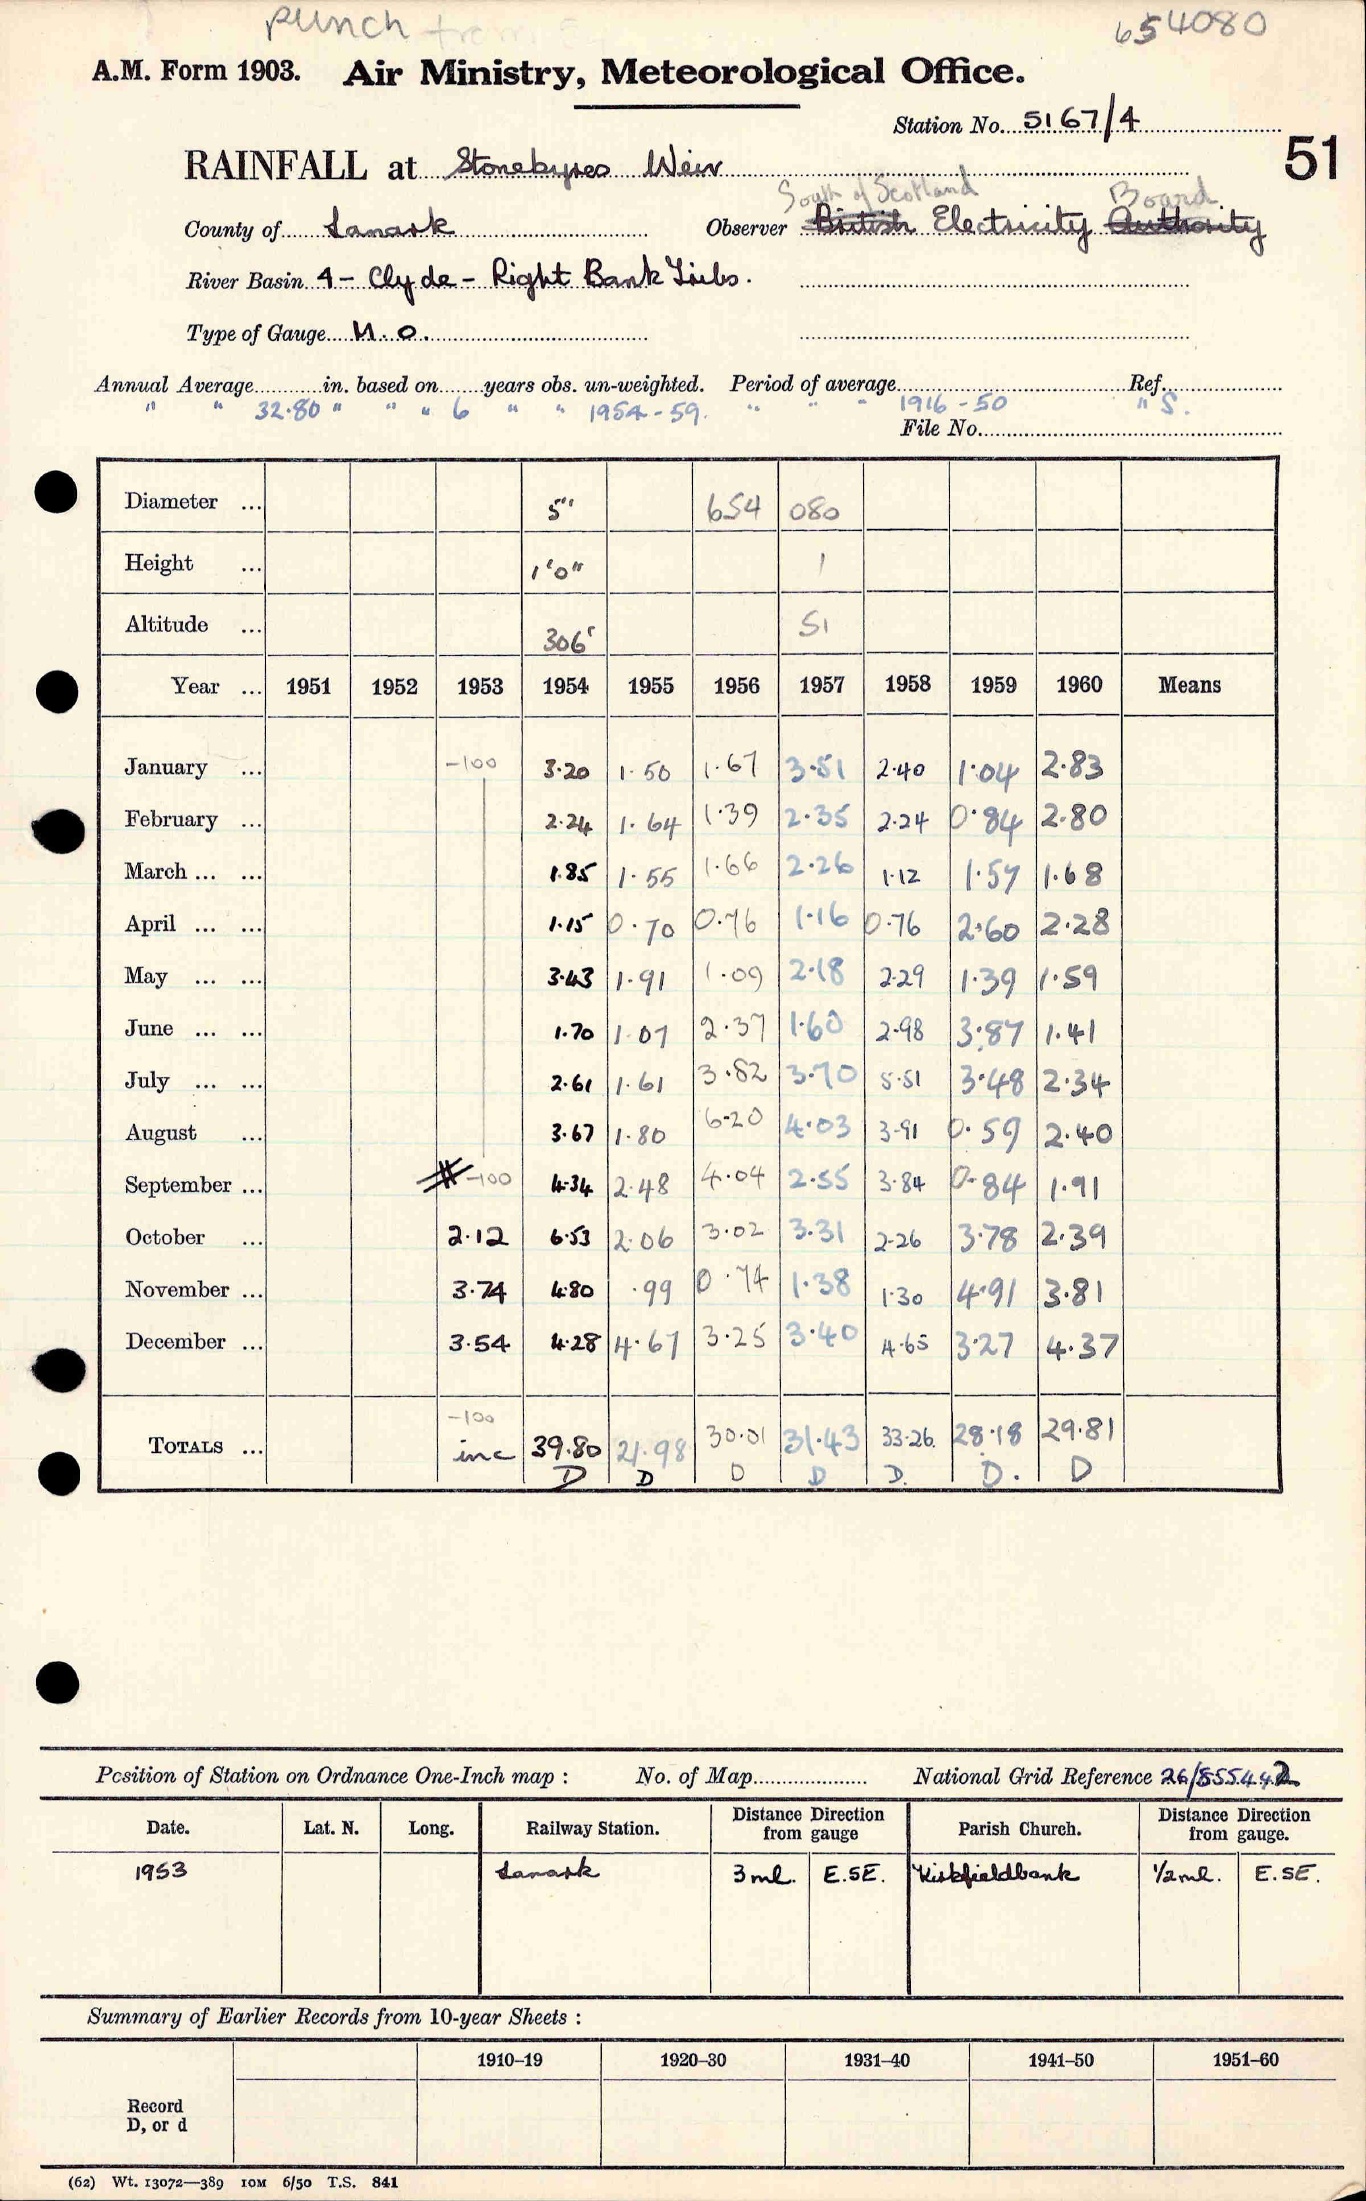 punch 654080
A.M. Form 1903. Air Ministry, Meteorological Office.
Station No. 5167/4
51
RAINFALL at Stonebyres Weir
South of Scotland Board
County of Lanark Observer British Electricity Authority
River Basin 4 - Clyde - Right Bank Tribs.
Type of Gauge M.O.
Annual Average in. based on years obs. un-weighted. Period of average Ref.
" " 32.80 " " " 6 " " 1954-59. " " " 1916-50 " S.
File No.
Diameter ... 5" 654 080
Height ... 1'0" 1
Altitude ... 306' 51
Year ... 1951 1952 1953 1954 1955 1956 1957 1958 1959 1960 Means
January ... -100 3.20 1.50 1.67 3.51 2.40 1.04 2.83
February ... 2.24 1.64 1.39 2.35 2.24 0.84 2.80
March ... ... 1.85 1.55 1.66 2.26 1.12 1.57 1.68
April ... ... 1.15 0.70 0.76 1.16 0.76 2.60 2.28
May ... ... 3.43 1.91 1.09 2.18 2.29 1.39 1.59
June ... ... 1.70 1.07 2.37 1.60 2.98 3.87 1.41
July ... ... 2.61 1.61 3.82 3.70 5.51 3.48 2.34
August ... 3.67 1.80 6.20 4.03 3.91 0.59 2.40
September ... -100 4.34 2.48 4.04 2.55 3.84 0.84 1.91
October ... 2.12 6.53 2.06 3.02 3.31 2.26 3.78 2.39
November ... 3.74 4.80 .99 0.74 1.38 1.30 4.91 3.81
December ... 3.54 4.28 4.67 3.25 3.40 4.65 3.27 4.37
-100
TOTALS ... inc 39.80 21.98 30.01 31.43 33.26. 28.18 29.81
D D D D D. D. D
Position of Station on Ordnance One-Inch map : No. of Map National Grid Reference 26/855442
Date. Lat. N. Long. Railway Station. Distance Direction from gauge Parish Church. Distance Direction from gauge.
1953 Lanark 3 ml. E.SE. Kirkfieldbank 1/2 ml. E.SE.
Summary of Earlier Records from 10-year Sheets :
1910-19 1920-30 1931-40 1941-50 1951-60
Record
D, or d
(62) Wt. 13072—389 10M 6/50 T.S. 841